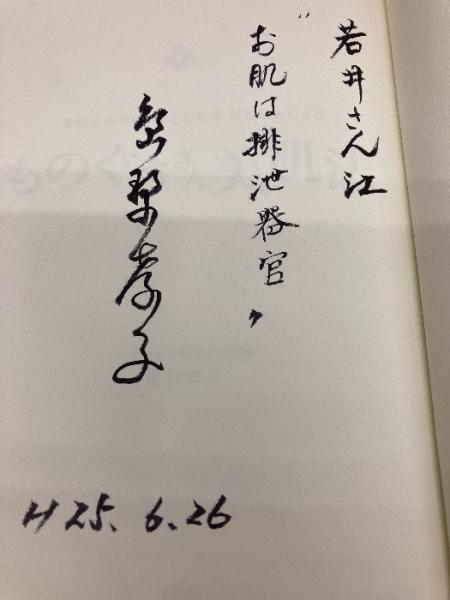 若井さん江
"お肌は排泄器官"
孝子
H25.6.26